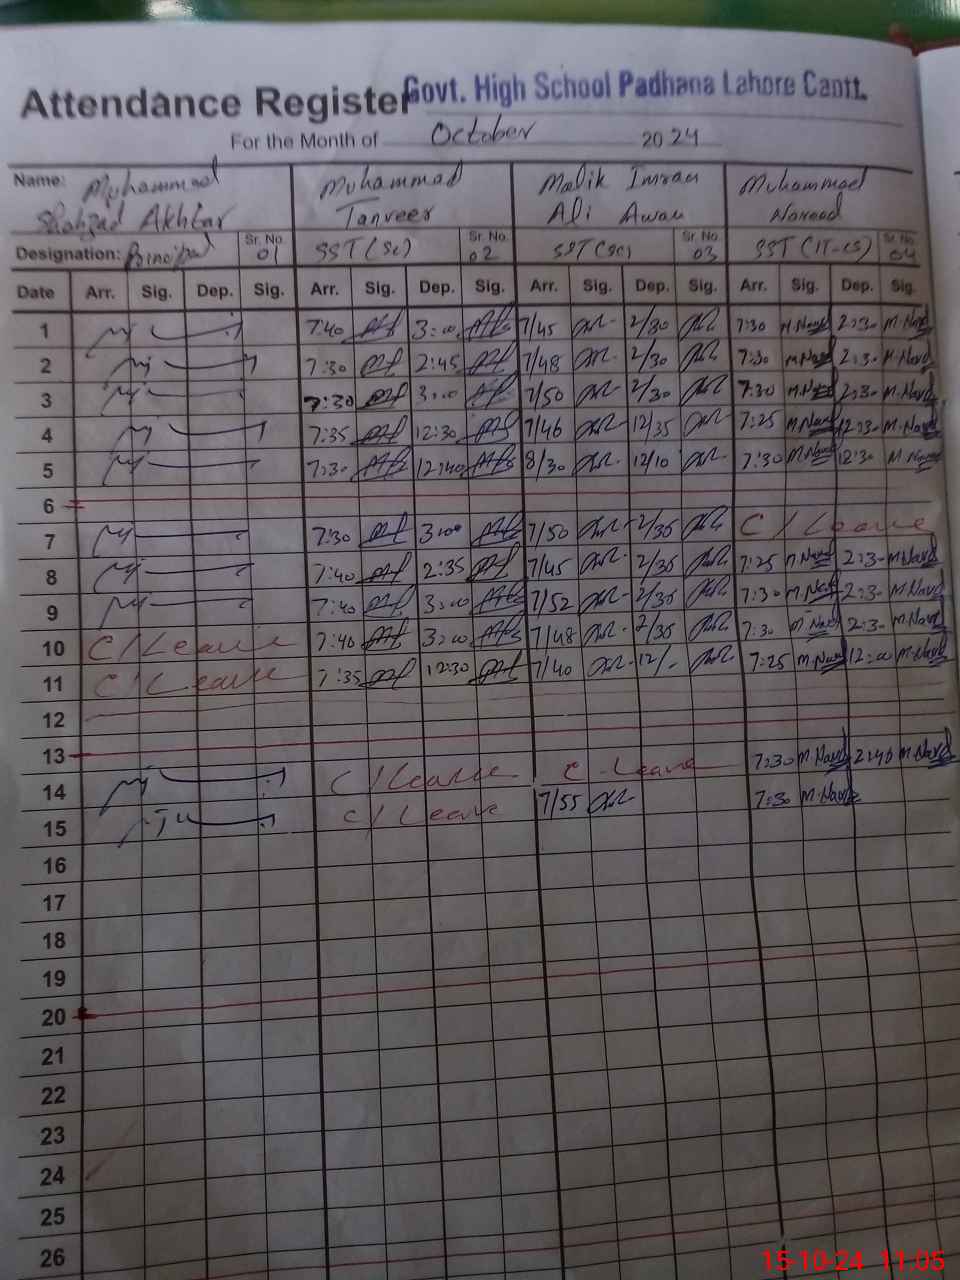 Attendance Register Govt. High School Padhana Lahore Cantt.
For the Month of October 2024
Name: Muhammad Shahzad Akhtar Muhammad Tanveer Malik Imran Ali Awan Muhammad Naveed
Designation: Principal Sr. No. 01 SST (Sc) Sr. No. 02 SST (Sc) Sr. No. 03 SST (IT-CS) Sr. No. 04
Date Arr. Sig. Dep. Sig. Arr. Sig. Dep. Sig. Arr. Sig. Dep. Sig. Arr. Sig. Dep. Sig.
1 7:40 3:00 7/45 2/30 7:30 M.Navd 2:30 M.Navd
2 7:30 2:45 7/48 2/30 7:30 M.Navd 2:30 M.Navd
3 7:30 3:00 7/50 2/30 7:30 M.Navd 2:30 M.Navd
4 7:35 12:30 7/46 12/35 7:25 M.Navd 12:30 M.Navd
5 7:30 12:40 8/30 12/10 7:30 M.Navd 12:30 M.Navd
6
7 7:30 3:00 7/50 2/35 C/Leave
8 7:40 2:35 7/45 2/35 7:25 M.Navd 2:30 M.Navd
9 7:40 3:00 7/52 2/35 7:30 M.Navd 2:30 M.Navd
10 C/Leave 7:40 3:00 7/48 2/35 7:30 M.Navd 2:30 M.Navd
11 C/Leave 7:35 12:30 7/40 12/- 7:25 M.Navd 12:00 M.Navd
12
13
14 C/Leave C-Leave 7:30 M.Navd 2:40 M.Navd
15 C/Leave 7/55 7:30 M.Navd
16
17
18
19
20
21
22
23
24
25
26
15-10-24 11:05